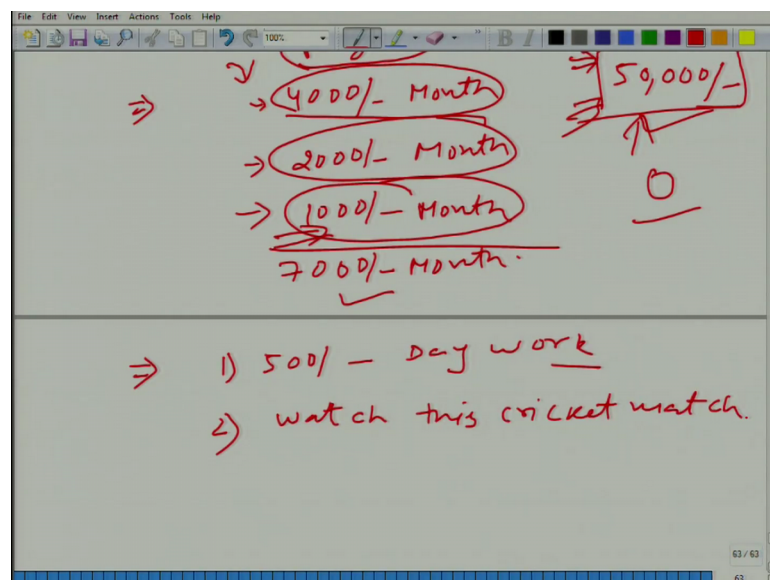 File Edit View Insert Actions Tools Help
100% B I
4000/- Month
50,000/-
2000/- Month
0
1000/- Month
7000/- Month.
1) 500/- Day work
2) watch this cricket match.
63 / 63
63